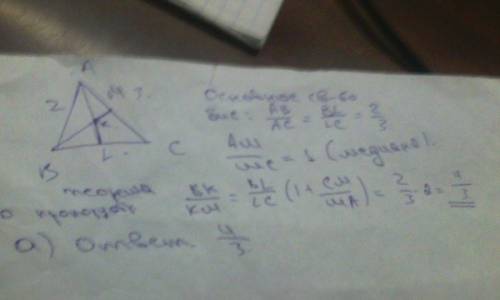 A
2
M
3.
K
B
L
C
Основное св-во
бис: AB/AC = BL/LC = 2/3
AM/MC = 1 (медиана).
теорема
о пропорц
BK/KM = BL/LC (1 + CM/MA) = 2/3 · 2 = 4/3
а) ответ 4/3